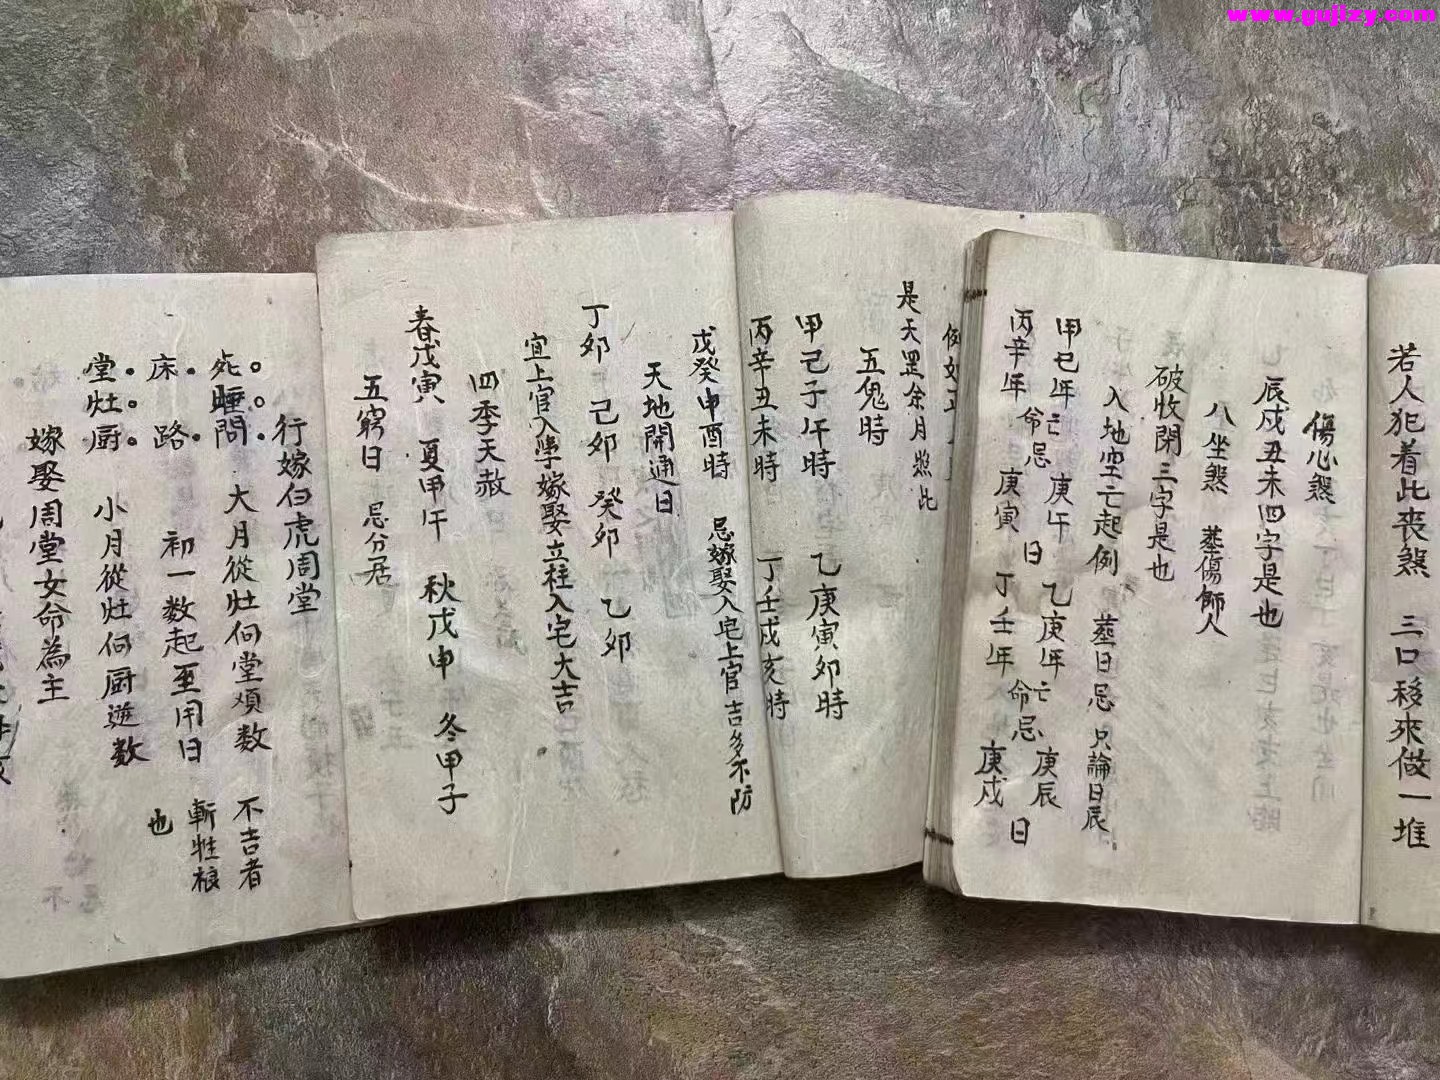 www.gujizy.com
若人犯着此丧煞 三口移來做一堆
傷心煞
辰戍丑未四字是也
八坐煞 塟傷師人
破收開三字是也
入地空亡起例 塟日忌 只論日辰
甲巳年亡命忌庚午日 乙庚年亡命忌庚辰日
丙辛年 庚寅 丁壬年 庚戍
是天罡余月照此
五鬼時
甲己子午時 乙庚寅卯時
丙辛丑未時 丁壬戍亥時
戊癸申酉時 忌嫁娶入宅上官吉多不防
天地開通日
丁卯 己卯 癸卯 乙卯
宜上官入學嫁娶立柱入宅大吉
四季天赦
春戊寅 夏甲午 秋戊申 冬甲子
五窮日 忌分居
行嫁白虎周堂
大月從灶向堂順数 不吉者
初一数起至用日
小月從灶向厨逆数 也
嫁娶周堂女命為主
睡
床 路
堂 灶 厨